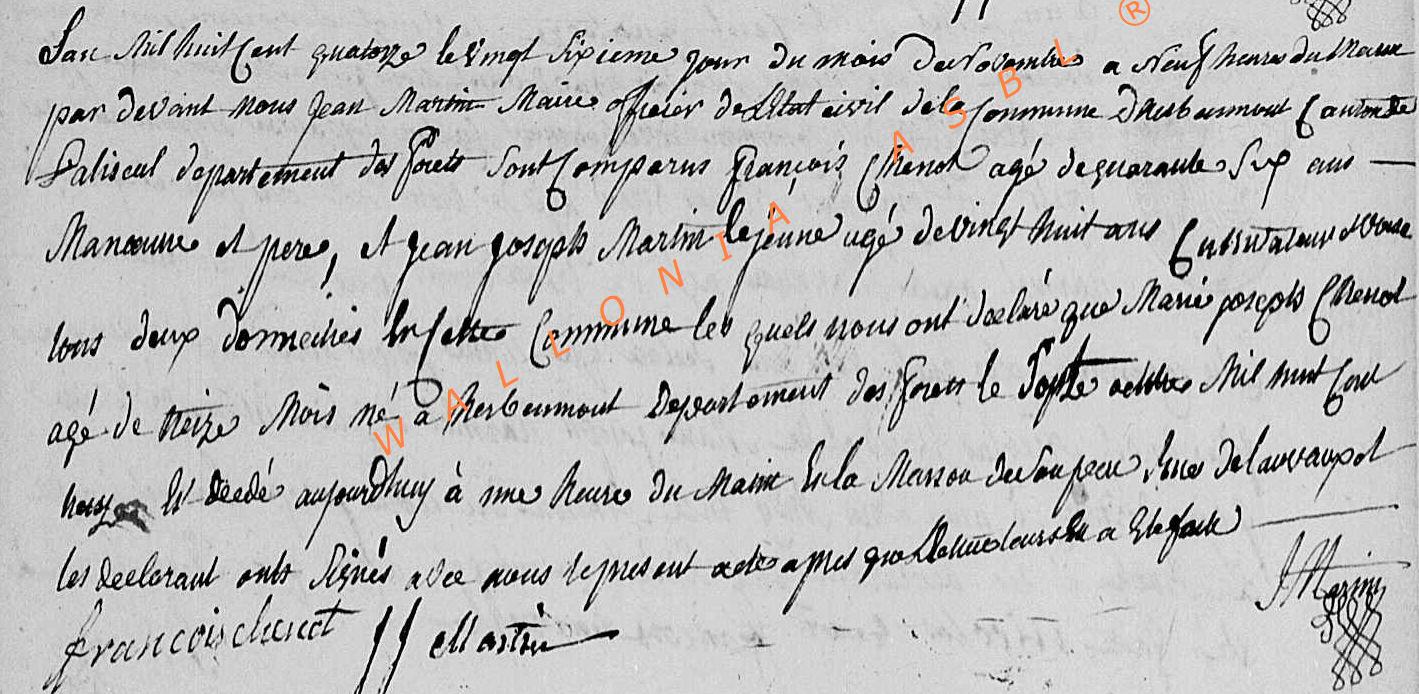 ®
L'an Mil huit Cent quatorze le Vingt Sixieme jour du mois de Novembre a Neuf heures du Matin
par devant nous Jean Martin Maire officier de L'Etat civil de la Commune d'herbeumont Canton de
Paliseul departement des forets sont Comparus François Chenot agé de quarante Six ans
Manœuvre et pere, et jean joseph Martin le jeune agé de vingt huit ans Cultivateur et
tous deux domiciliés En Cette Commune les quels nous ont declaré que Marie joseph Chenot
agé de treize Mois né a herbeumont Departement des forets le Sept octobre Mil huit Cent
treize Est decedé aujourdhuy à une heure du Matin En la Maison de Son pere
les declarant onts Signés avec nous le present acte apres que Lecture leurs En a Eté fait
francois chenot JJ Martin JMartin
WALLONIA ASBL